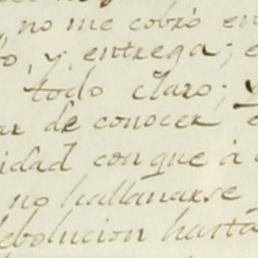 , no me cobró en
o, y, entrega;
todo claro; y
ar de conocer
idad con que à
no hallanarse
ebolucion hasta